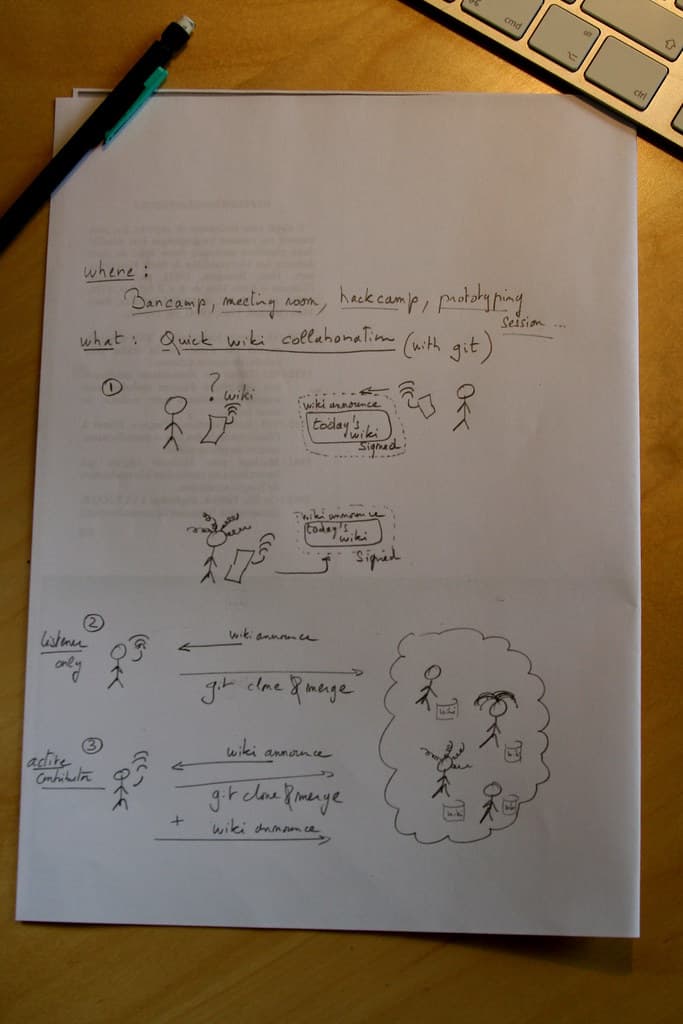 cmd
⌥
ctrl
where :
Barcamp, meeting room, hackcamp, prototyping
session ...
what : Quick wiki collaboration (with git)
①
? wiki
wiki announce
today's
wiki
signed
wiki announce
today's
wiki
signed
②
listener
only
wiki announce
git clone & merge
③
active
contributor
wiki announce
git clone & merge
+ wiki announce
wiki
wiki
wiki
wiki